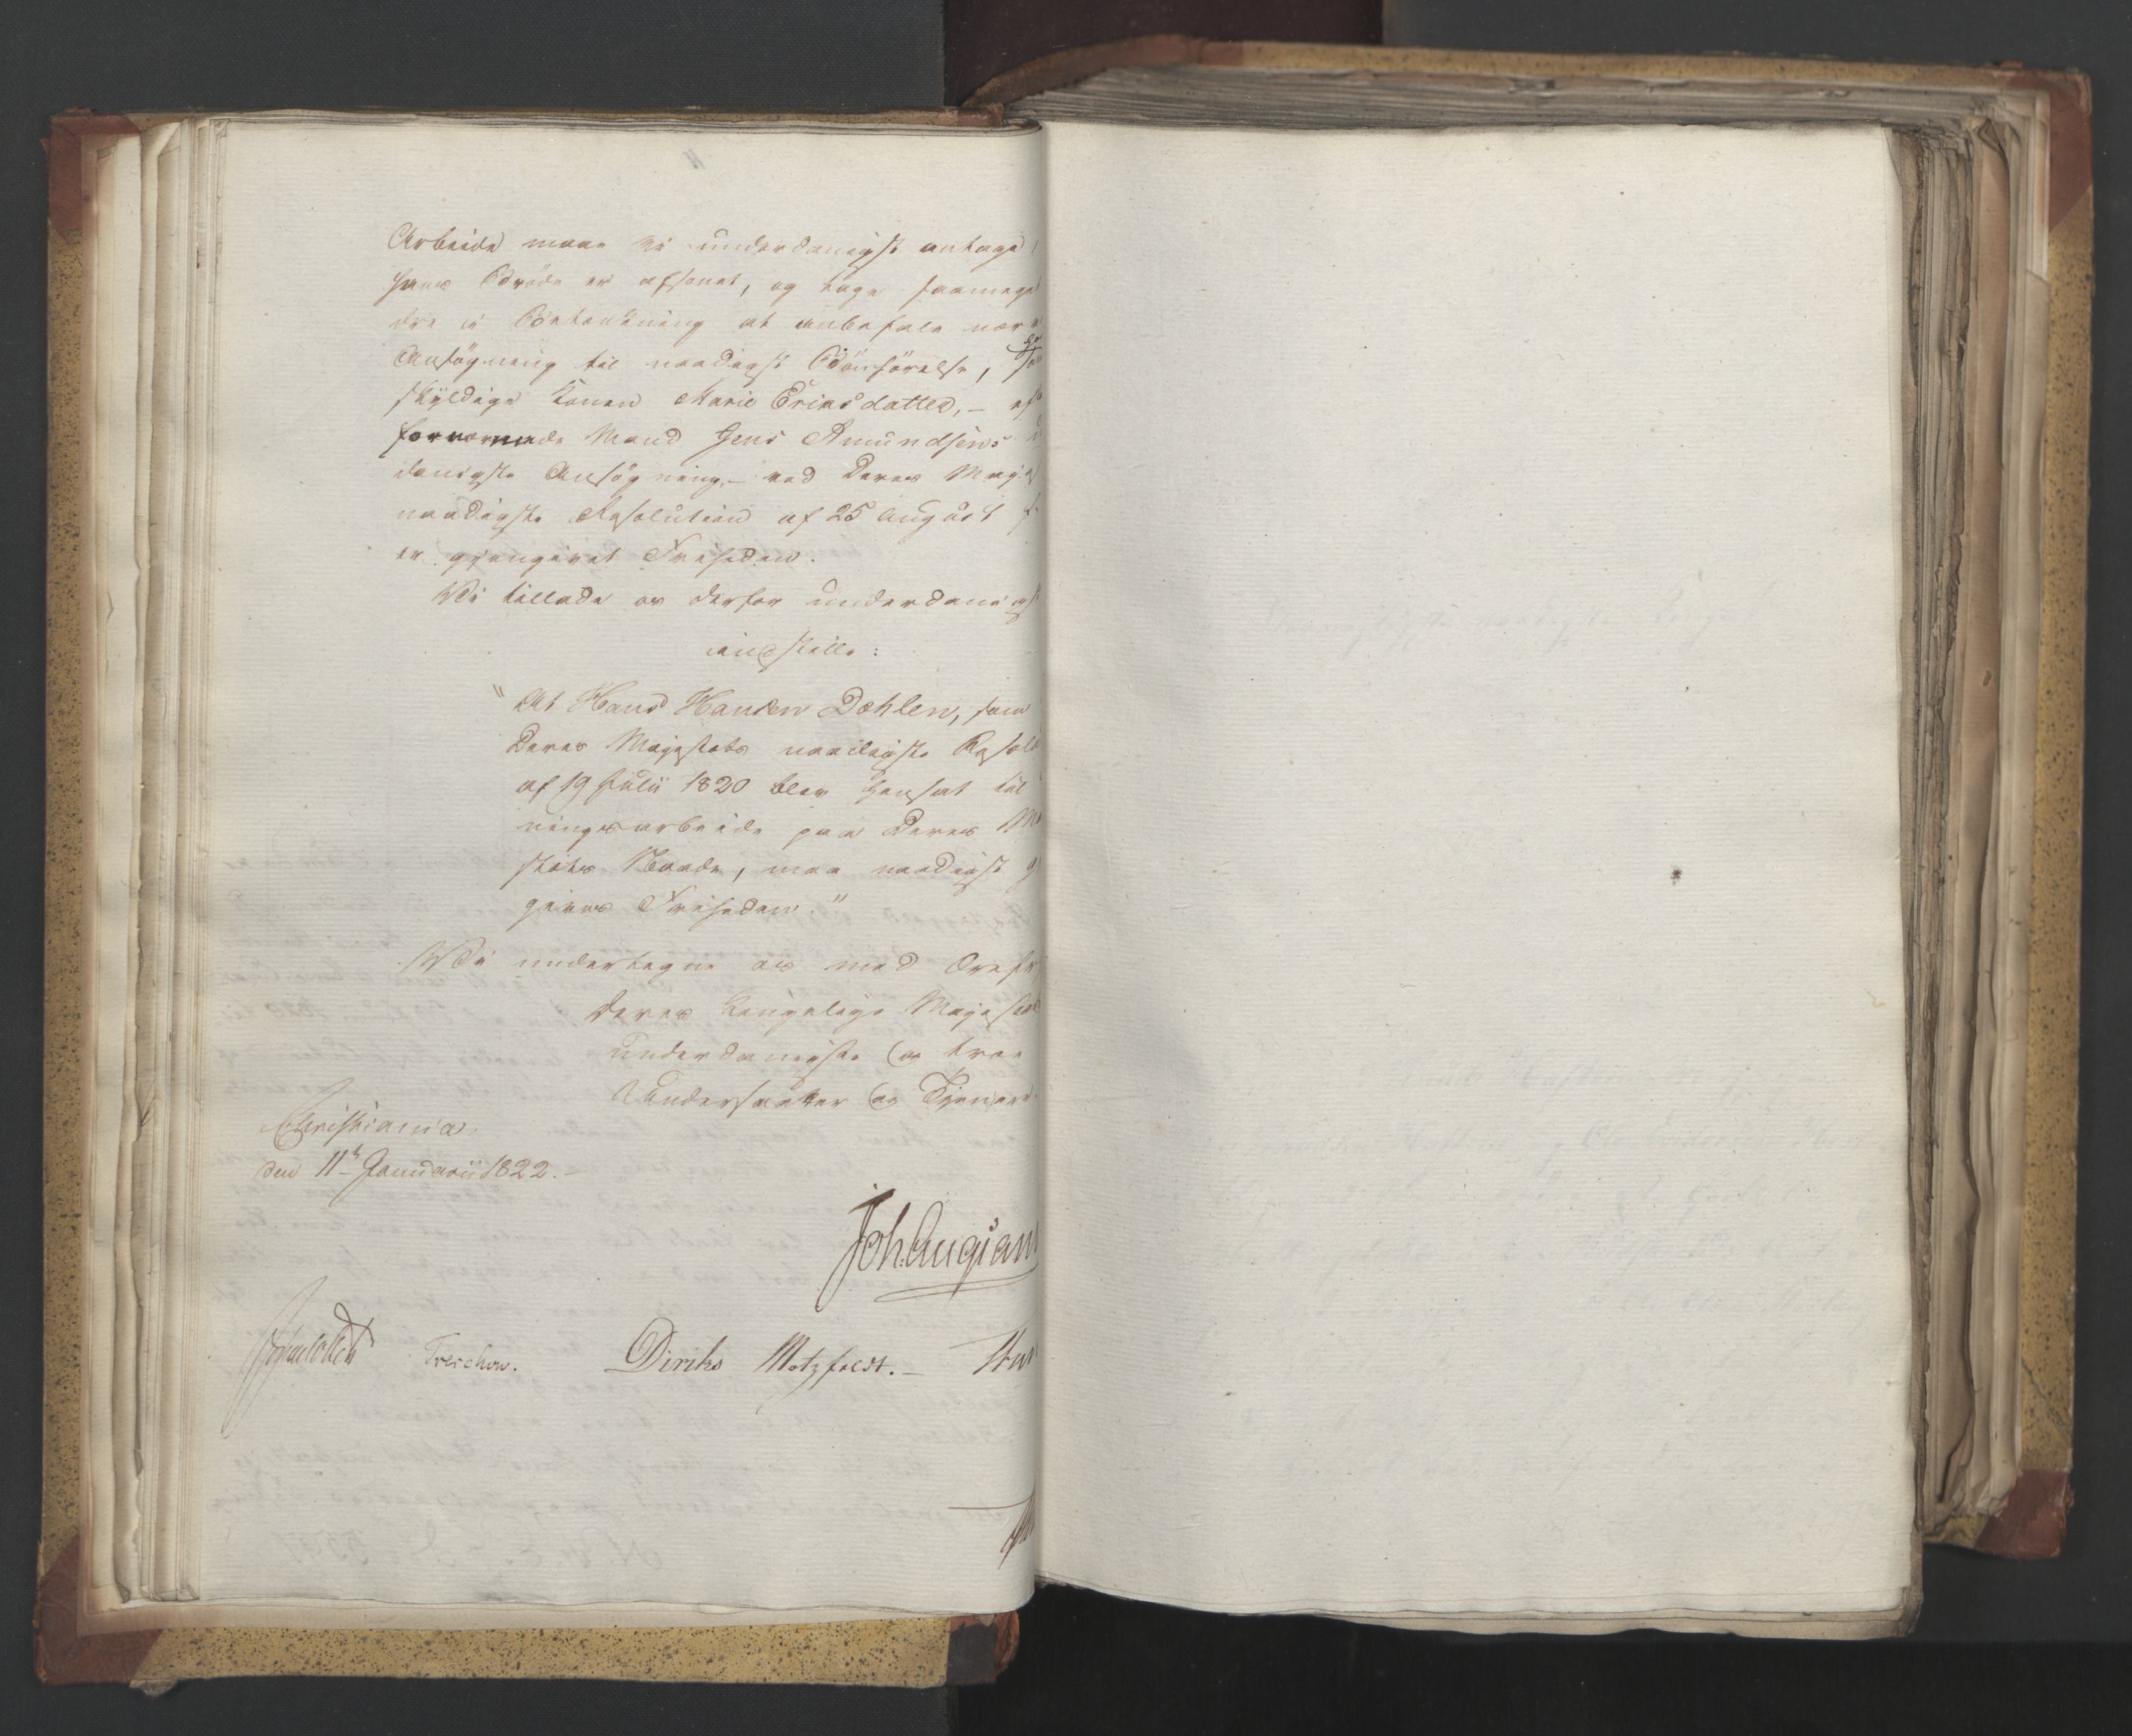 Arbeide maae vi underdanigst antage,
hans Brøde er afsonet, og tage saameget
dre i Betænkning at anbefale nær
Ansøgning til naadigst Bønhørelse,
skyldige Konen Marie Eriksdatter, – ef
fornævnede Mand Jens Amundsens
danigste Ansøgning, – ved Deres Maje
naadigste Resolution af 25 August
er gjengivet Friheden.
Vi tillade os derfor underdanigst
indstille:
"At Hans Hansen Dæhlen, som
Deres Majestæts naadigste Resolu
af 19 Julii 1820 blev hensat til
ningsarbeide paa Deres Ma
stæts Naade, maa naadigst g
gives Friheden"
Vi undertegne os med Ærefr
Deres Kongelige Majestæt
underdanigste og troe
Undersaatter og Tjenere.
Christiania
den 11te Januarii 1822. –
Joh. Aug: San
Treschow.
Diriks
Motzfeldt. –